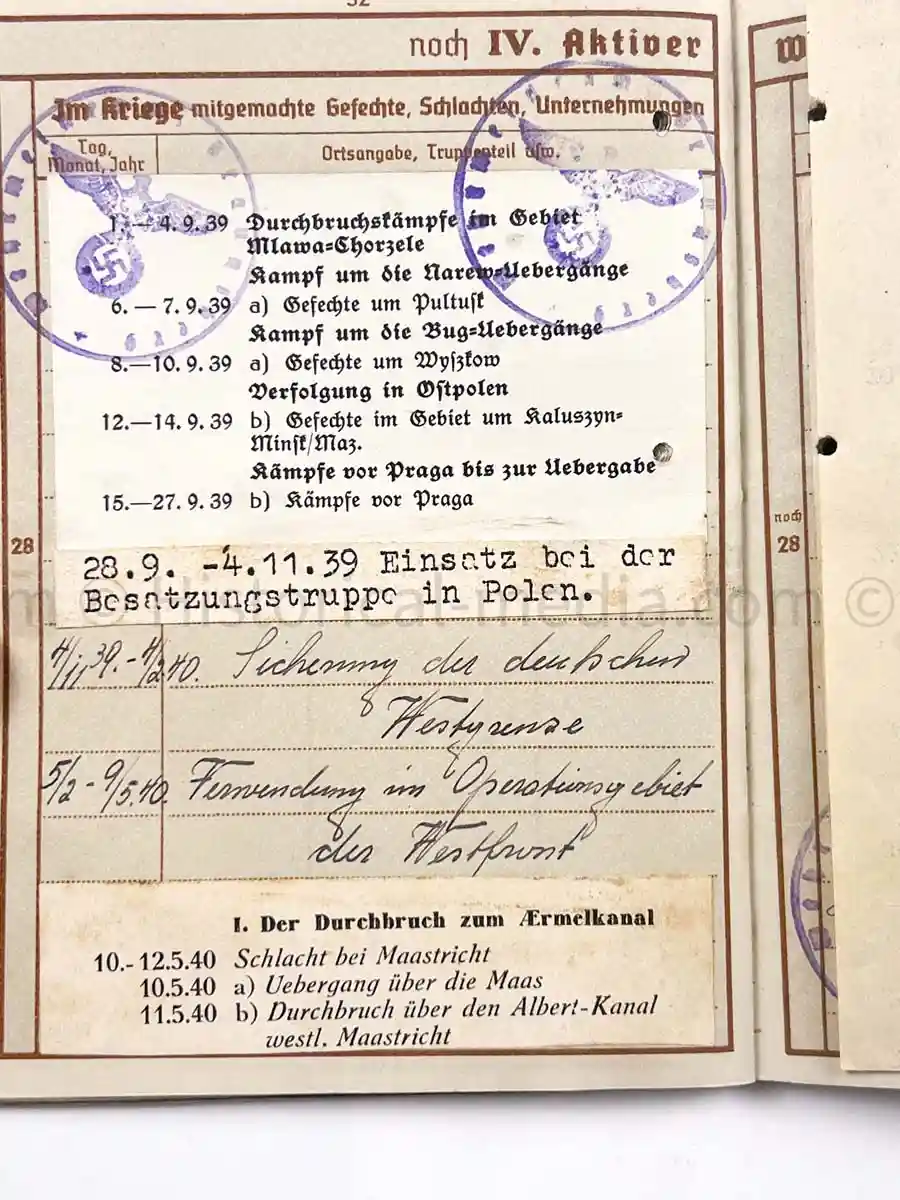 32
noch IV. Aktiver
Im Kriege mitgemachte Gefechte, Schlachten, Unternehmungen
Tag, Monat, Jahr
Ortsangabe, Truppenteil usw.
1.—4.9.39 Durchbruchskämpfe im Gebiet
Mlawa=Chorzele
Kampf um die Narew=Uebergänge
6. — 7.9.39 a) Gefechte um Pultusk
Kampf um die Bug=Uebergänge
8.—10.9.39 a) Gefechte um Wyszkow
Verfolgung in Ostpolen
12.—14.9.39 b) Gefechte im Gebiet um Kaluszyn=
Minsk/Maz.
Kämpfe vor Praga bis zur Uebergabe
15.—27.9.39 b) Kämpfe vor Praga
28
28.9. -4.11.39 Einsatz bei der
Besatzungstruppe in Polen.
4/11.39.-4/2.40. Sicherung der deutschen
Westgrenze
5/2-9/5.40. Verwendung im Operationsgebiet
der Westfront
I. Der Durchbruch zum Ærmelkanal
10.- 12.5.40 Schlacht bei Maastricht
10.5.40 a) Uebergang über die Maas
11.5.40 b) Durchbruch über den Albert-Kanal
westl. Maastricht
noch
28
© Historical-media.com ©